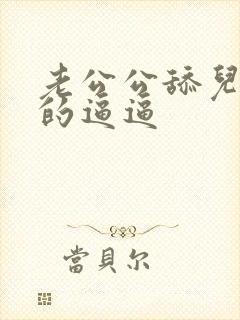 老公公舔兒
的逼逼
當貝尔